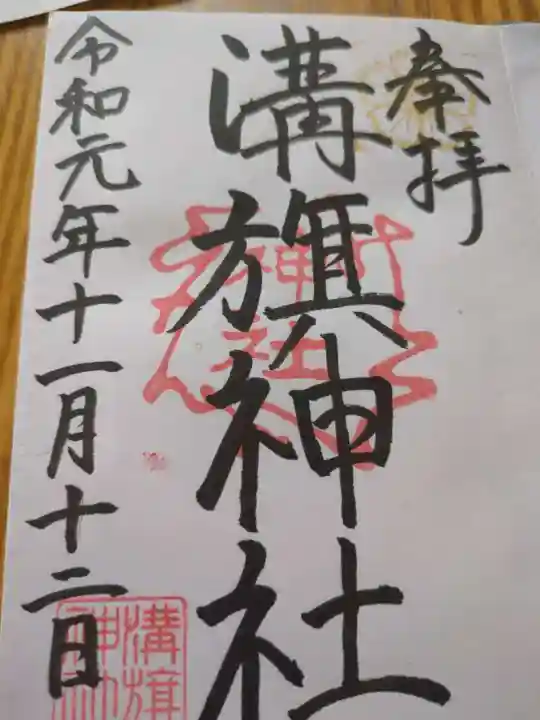 奉拝
溝旗神社
令和元年十一月十二日
神社
溝旗
神社